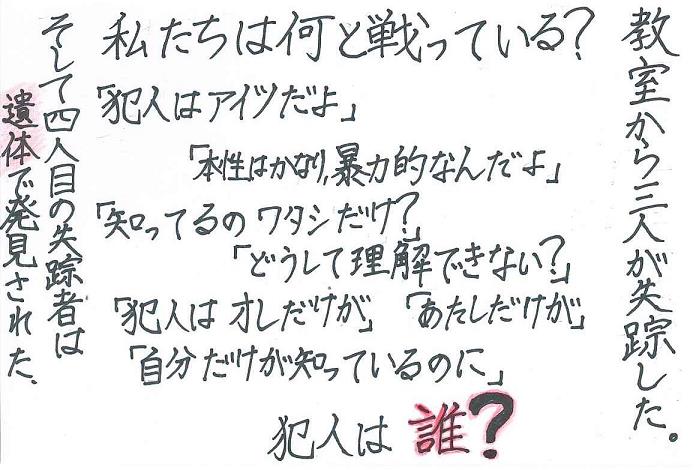 教室から三人が失踪した。
私たちは何と戦っている?
「犯人はアイツだよ」
「本性はかなり,暴力的なんだよ」
「知ってるのワタシだけ?」
「どうして理解できない?」
「犯人はオレだけが」「あたしだけが」
「自分だけが知っているのに」
犯人は誰?
そして四人目の失踪者は
遺体で発見された.